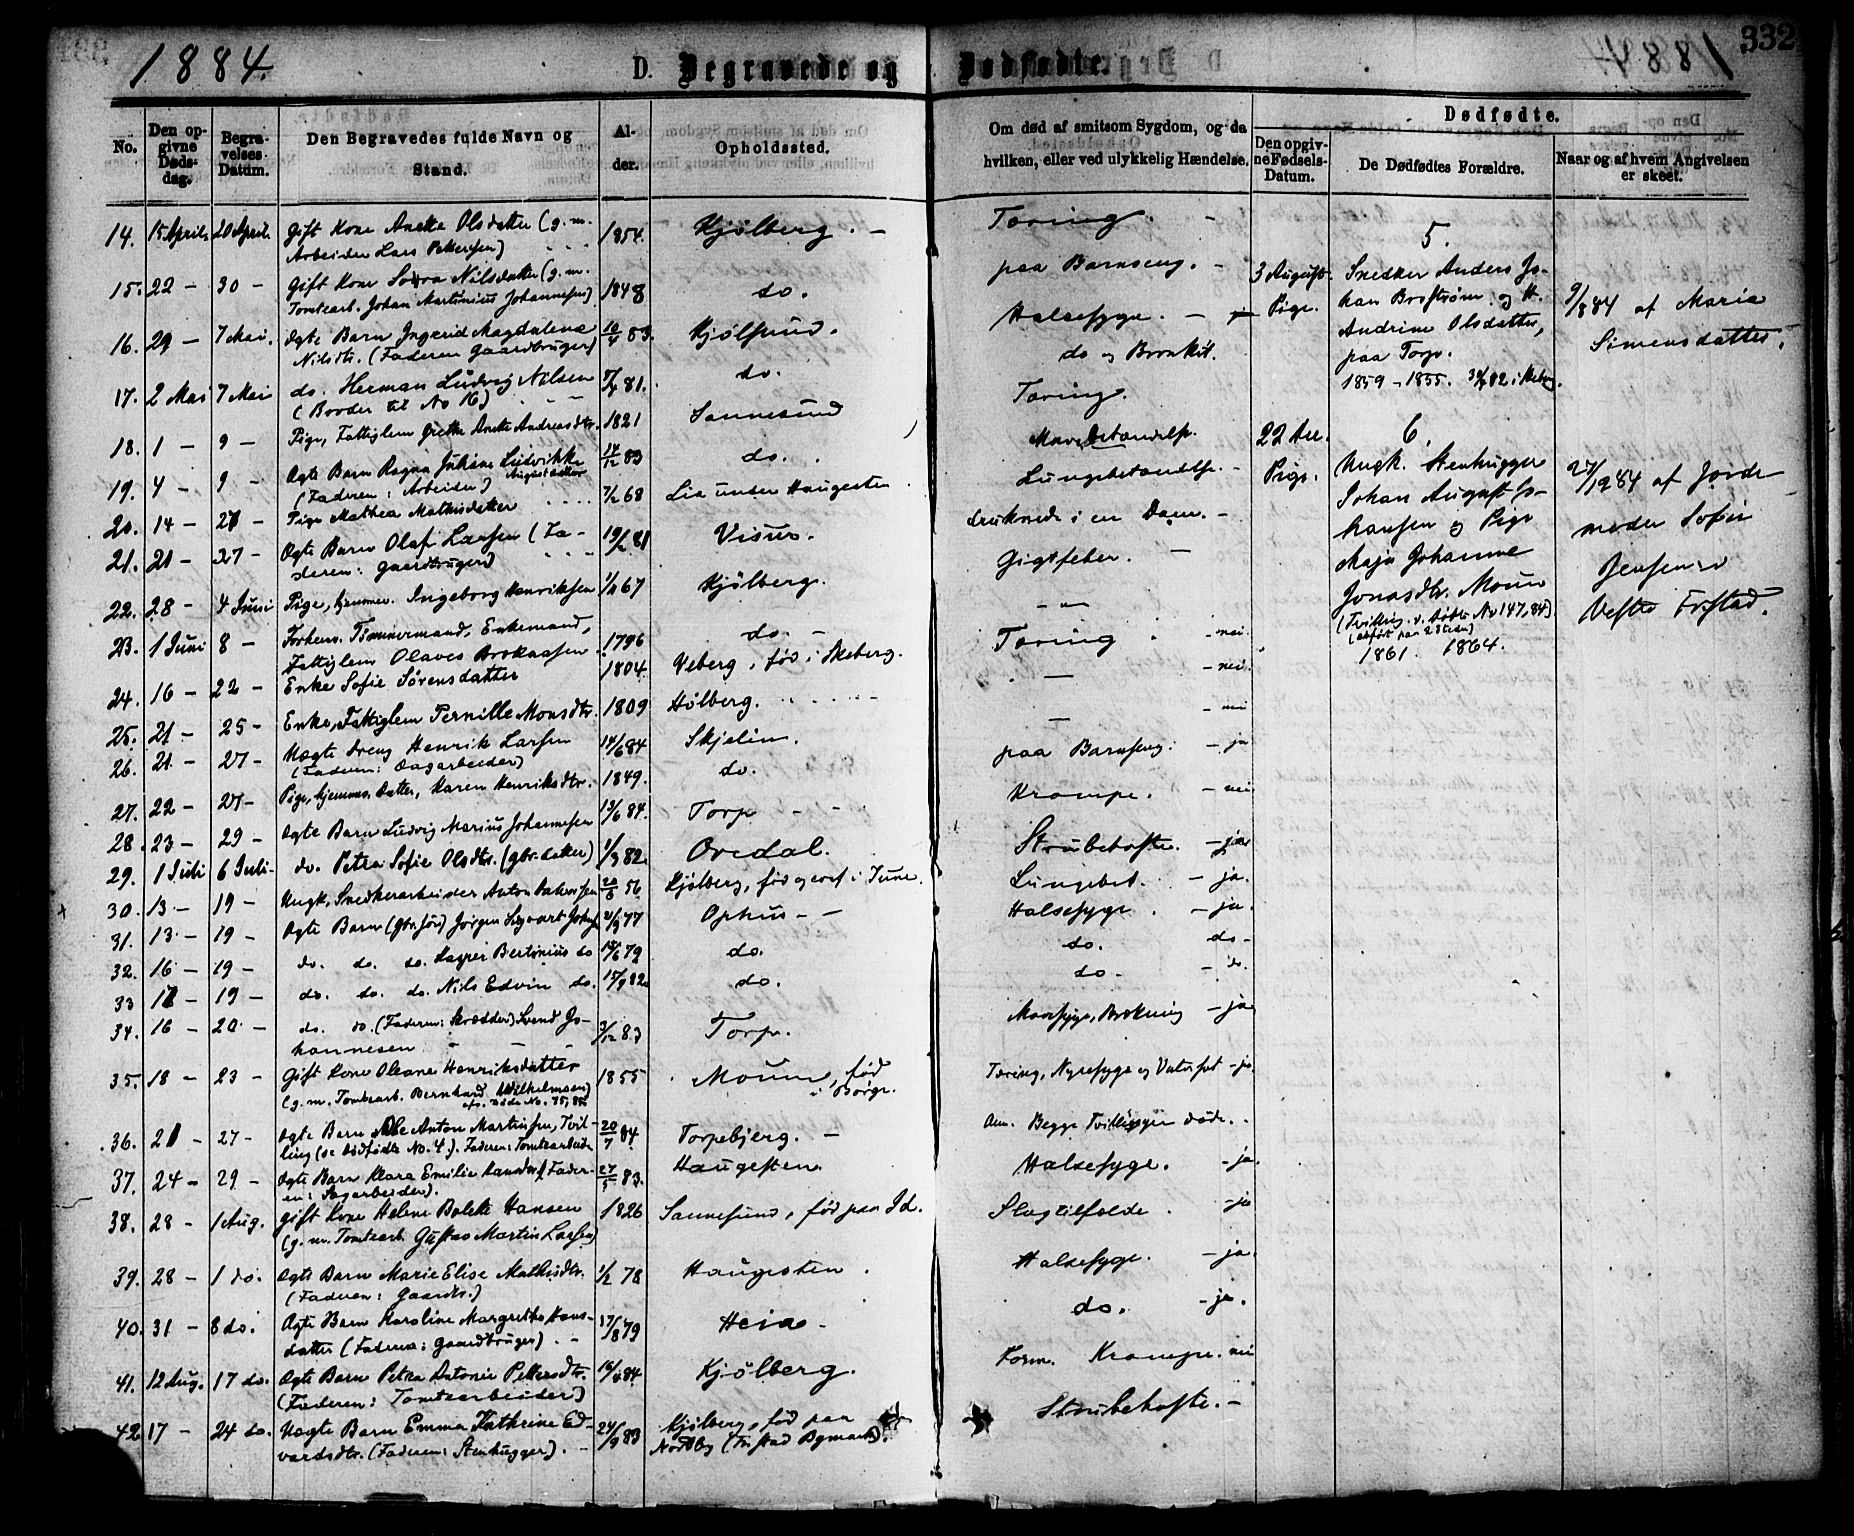 1884.
D. Begravede og Dødfødte.
332
No.
Den opgivne Dødsdag.
Begravelses Datum.
Den Begravedes fulde Navn og Stand.
Alder.
Opholdssted.
Om død af smitsom Sygdom, og da hvilken, eller ved ulykkelig Hændelse.
Dødfødte.
Den opgivne Fødsels-Datum.
De Dødfødtes Forældre.
Naar og af hvem Angivelsen er skeet.
14. 15 April 20 April Gift Kone Anette Olsdatter (g.m. 1854. Kjølberg. Tæring.
Arbeider Lars Pettersen)
15. 22 - 30 - Gift Kone Nilsdatter (g.m. 1848 do. paa Barnseng.
Tomtearb. Johan Martinius Johannesen)
16. 29 - 7 Mai. Ægte Barn Ingerid Magdalena 83. Kjølsund. Halsesyge.
Nilsdtr. (Faderen Gaardbruger)
17. 2 Mai 7 Mai do. Herman Ludvig Nilsen 81. do. do og Bronkit.
(Broder til No 16)
18. 1 - 9 - Pige, Fattiglem Grethe Anette Andreasdtr. 1821 Sannesund Tæring.
19. 4 - 9 - Ægte Barn Ragna Juliane Ludvikke Augustdatter 14/12 83 do. Mavebetændelse.
(Faderen: Arbeider)
20. 14 - 27 - Pige Mathea Mathisdatter 7/2 68 Lia under Haugesten Lungebetændelse.
21. 21 - 27 - Ægte Barn Olaf Larsen (Fa- 19/2 81 Visur. druknede i en Dam.
deren: Gaardbruger)
22. 28 - 4 Juni Pige, hjemmev. Ingeborg Henriksen 67 Kjølberg. Gigtfeber.
23. 1 Juni 8 - Forhenv. Tømmermand, Enkemand, 1796 do.
Fattiglem Olaves
24. 16 - 22 - Enke Sofie Sørensdatter 1804. Veberg, fød i Skeberg. Tæring - nei.
25. 21 - 25 - Enke, Fattiglem Pernille Monsdtr. 1809 Hølberg. - nei.
26. 21 - 27 - Uægte Dreng Henrik Larsen 14/6 84 Skjelin. - nei
(Faderen: Dagarbeider)
27. 22 - 27 - Pige, hjemmev. datter, Karen Henriksdtr. 1849. do. paa Barnseng. - ja
28. 23 - 29 - Ægte Barn Ludvig Marius Johannesen 13/6 84. Torp Krampe. - nei
29. 1 Juli 6 Juli - do. Petra Sofie Olsdtr. (gbr. datter) 1/9 82. Oredal. Strubehoste. - ja
30. 13 - 19 - Ungk. Snedkerarbeider Anton 56 Kjølberg, fød og conf. i Tune. Lungebet. - ja.
31. 13 - 19 - Ægte Barn (Gbr. Søn) Jørgen Sigvart 77 Ophus Halsesyge. - ja.
32. 16 - 19 - do. do. do. Bertinius do 79 do. do. do -
33 17 - 19 - do. do. do. Nils Edvin do. 15/9 82 do. do - do.
34. 16 - 20 - do. do (Faderen: Skrædder) Svend Jo- 3/12 83 Torp. Mavesyge, Brækning - ja
hannesen
35. 18 - 23 - Gift Kone Oleane Henriksdatter 1855 Moum, fød i Borge. Tæring, Nyresyge og Vatersot - ja
(g.m. Tomtearb. Bernhard Wilhelmsen)
36. 21 - 27 - Ægte Barn Ole Anton Martinsen, Tvil- 20/7 84 Torpebjerg. Anm. Begge Tvillinger døde.
ling (se dødfødte No. 4). Faderen: Tomtearbeider
37. 24 - 29 - Ægte Barn Klara Emilie Hansdtr. (Fader- 27/5 83. Haugesten. Halsesyge. - ja.
en: Dagarbeider).
38. 28 - 1 Aug. Gift Kone Helene Bolette Hansen 1826 Sannesund, fød paa Id. Slagtilfælde. - ja
(g.m. Tomtearb. Gustav Martin Larsen)
39. 28 - 1 do. Ægte Barn Marie Elise Mathisdtr. 1/2 78 Haugesten. Halsesyge. - ja.
(Faderen: Gaardbr.)
40. 31 - 8 do. Ægte Barn Karoline Margrethe Hans- 17/8 79 Heia. do. - ja.
datter (Faderen: Gaardbruger).
41. 12 Aug. 17 do. Ægte Barn Petra Antonie Pettersdtr. 84 Kjølberg. Form. Krampe. nei
(Faderen: Tomtearbeider)
42 17 - 24 do. Uægte Barn Emma Kathrine Ed- 24/9 83 Kjølberg, fød paa Strubehoste. -
vardsdtr. (Faderen: Stenhugger). Nordby (Tistad Bgmark).
5.
3 August. Snedker Anders Jo-
Pige. han Brostrøm og H.
Andrine Olsdatter,
paa Torp.
1859 - 1855.
9/8 84 af Maria
Simensdatter.
6.
22 Dec. Ungk. Stenhugger
Pige. Johan August Jo-
hansen og Pige
Maja Johanne
Jonasdtr. Moum
(Tvilling v. døbte No 147, 84)
1861. 1864.
27/12 84 af Jorde-
moder Sofie
Jensen